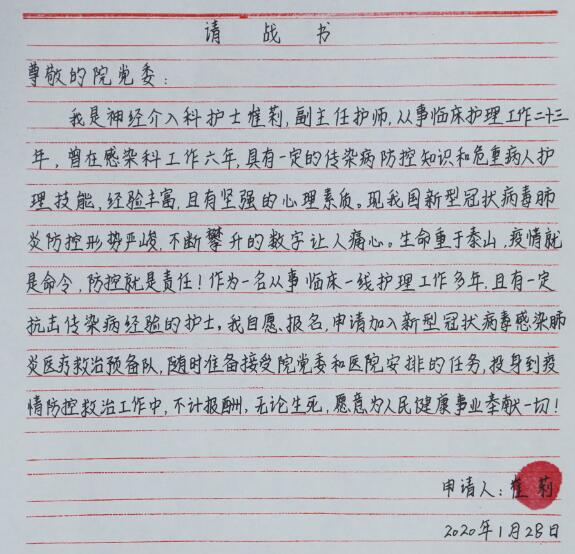 请战书
尊敬的院党委：
我是神经介入科护士崔莉，副主任护师，从事临床护理工作二十三
年，曾在感染科工作六年，具有一定的传染病防控知识和危重病人护
理技能，经验丰富，且有坚强的心理素质。现我国新型冠状病毒肺
炎防控形势严峻，不断攀升的数字让人痛心。生命重于泰山，疫情就
是命令，防控就是责任！作为一名从事临床一线护理工作多年，且有一定
抗击传染病经验的护士，我自愿报名，申请加入新型冠状病毒感染肺
炎医疗救治预备队，随时准备接受院党委和医院安排的任务，投身到疫
情防控救治工作中，不计报酬，无论生死，愿意为人民健康事业奉献一切！
申请人：崔莉
2020年1月28日